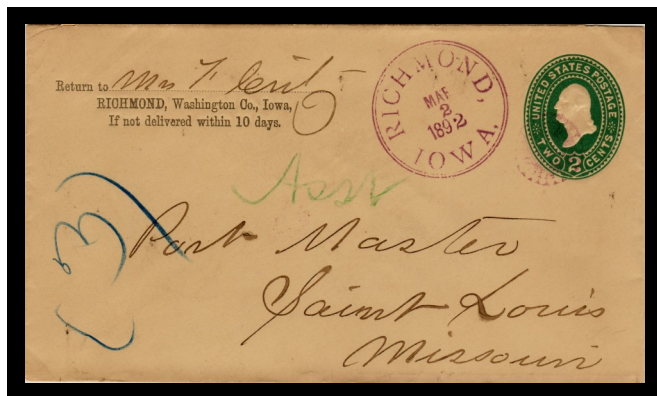 Return to Mrs F
RICHMOND, Washington Co., Iowa,
If not delivered within 10 days.
RICHMOND,
MAR
2
1892
IOWA.
UNITED STATES POSTAGE
TWO 2 CENTS
Asst
(3)
Post Master
Saint Louis
Missouri